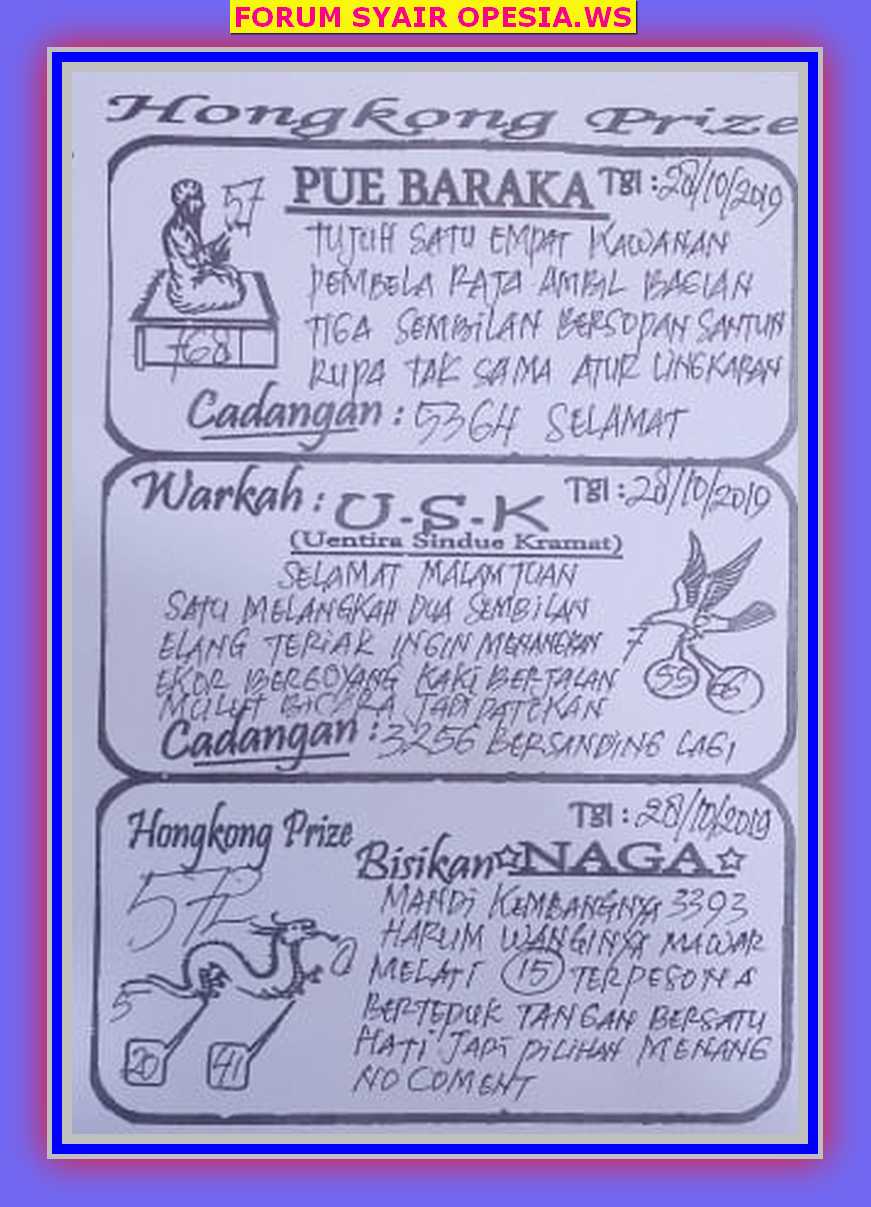 FORUM SYAIR OPESIA.WS
Hongkong Prize
PUE BARAKA Tgl : 28/10/2019
57
TUJUH SATU EMPAT KAWANAN
PEMBELA RAJA AMBIL BAGIAN
TIGA SEMBILAN BERSOPAN SANTUN
768
RUPA TAK SAMA ATUR LINGKARAN
Cadangan : 5364 SELAMAT
Warkah : U-S-K Tgl : 28/10/2019
(Uentira Sindue Kramat)
SELAMAT MALAM TUAN
SATU MELANGKAH DUA SEMBILAN
ELANG TERIAK INGIN MENANGKAN
7
EKOR BERGOYANG KAKI BERJALAN
55 66
MULUT BICARA JADI PATOKAN
Cadangan : 3256 BERSANDING LAGI
Hongkong Prize Tgl : 28/10/2019
Bisikan ☆NAGA☆
572
MANDI KEMBANGNYA 3393
HARUM WANGINYA MAWAR
MELATI 15 TERPESONA
0
5
BERTEPUK TANGAN BERSATU
HATI JADI PILIHAN MENANG
20 41
NO COMENT